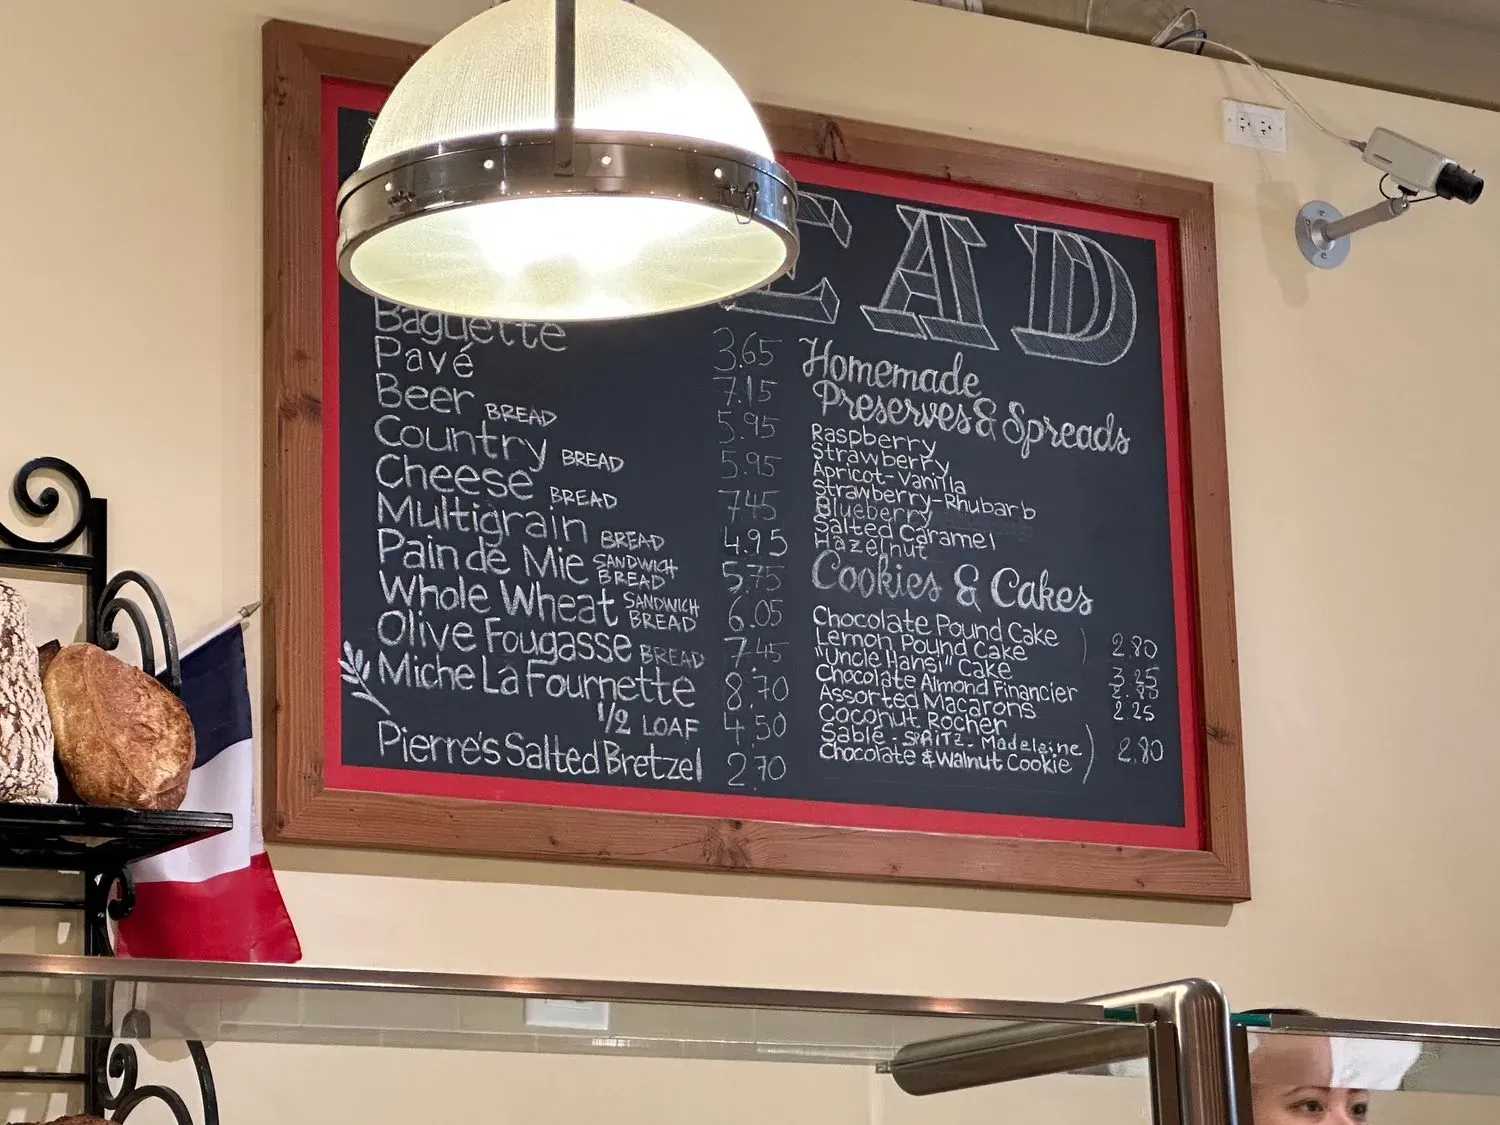 EAD
Baguette 3.65
Pavé 7.15
Beer BREAD 5.95
Country BREAD 5.95
Cheese BREAD 7.45
Multigrain BREAD 4.95
Pain de Mie SANDWICH BREAD 5.75
Whole Wheat SANDWICH BREAD 6.05
Olive Fougasse BREAD 7.45
Miche La Fournette 8.70
1/2 LOAF 4.50
Pierre's Salted Bretzel 2.70
Homemade
Preserves & Spreads
Raspberry
Strawberry
Apricot-Vanilla
Strawberry-Rhubarb
Blueberry
Salted Caramel
Hazelnut
Cookies & Cakes
Chocolate Pound Cake
Lemon Pound Cake ) 2.80
"Uncle Hansi" Cake 3.25
Chocolate Almond Financier
Assorted Macarons 2.25
Coconut Rocher
Sablé - SPRITZ - Madeleine
Chocolate & Walnut Cookie ) 2.80